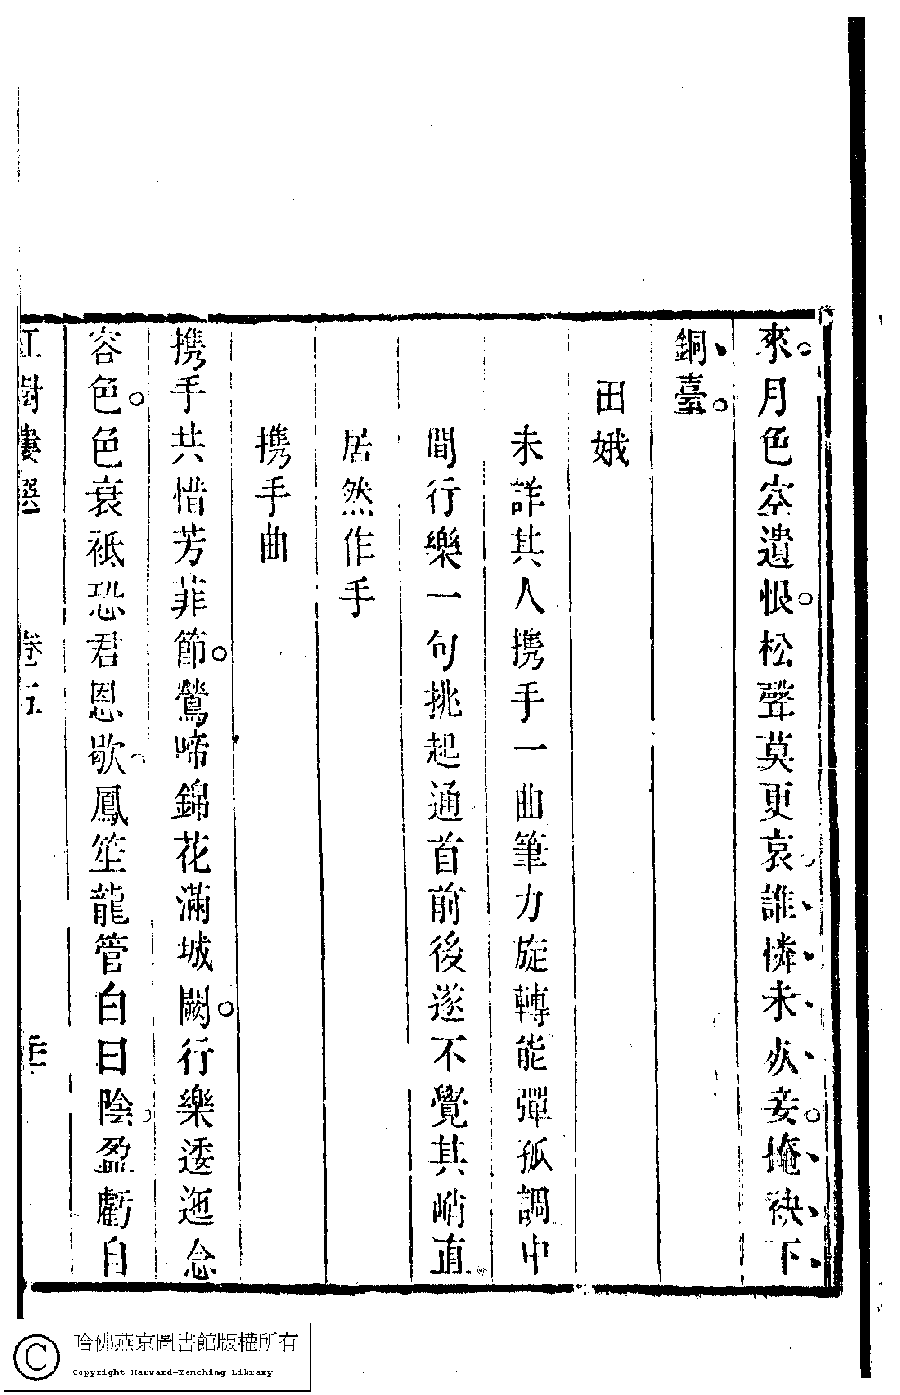 來月色空遺恨松聲莫更哀誰憐未火妾掩袂下
銅臺
田娥
未詳其人携手一曲筆力旋轉能彈孤調中
間行樂一句挑起通首前後遂不覺其峭直
居然作手
携手曲
携手共惜芳菲節鶯啼錦花滿城闕行樂逶迤念
容色色衰祗恐君恩歇鳳笙龍管白日陰盈虧自
紅樹樓選 卷五
哈佛燕京圖書館版權所有
Copyright Harvard-Yenching Library